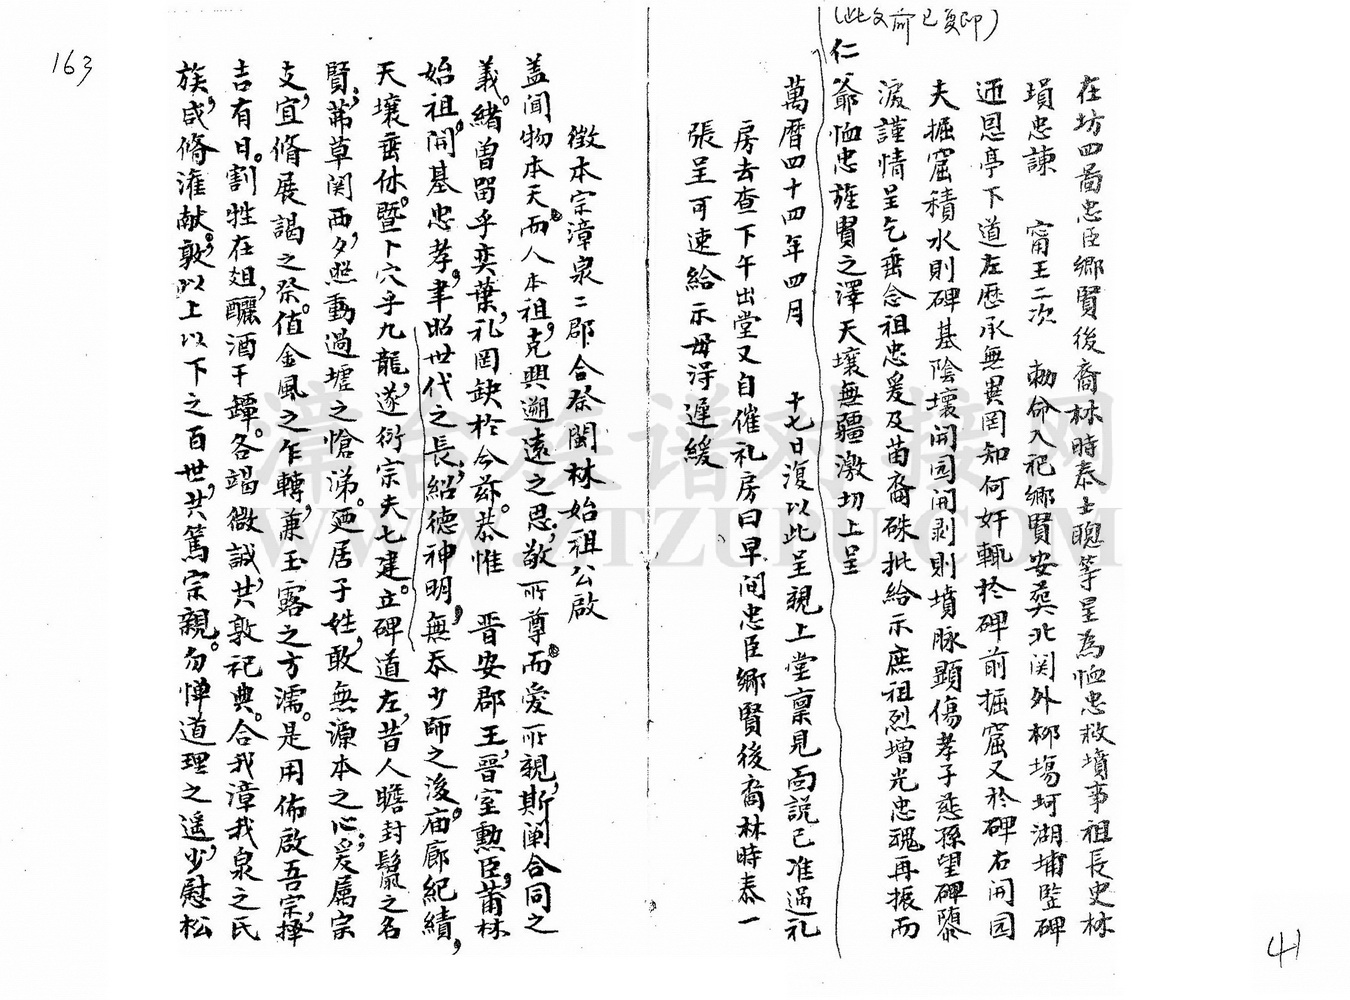 (此文前已复印)
在坊四啚忠臣鄉賢後裔林時泰士聰等呈為恤忠救墳事祖長史林
塤忠諫 甯王二次 勅命入祀鄉賢安葬北関外柳塲坷湖埔監碑
迊恩亭下道左歷承無異罔知何奸輒於碑前掘窟又於碑右開园
夫掘窟積水則碑基陰壞開园開剥則墳脉顯傷孝子慈孫望碑墮
淚謹情呈乞垂念祖忠爰及苗裔硃批給示庶祖烈增光忠魂再振而
仁爺恤忠旌賢之澤天壤無疆激切上呈
萬曆四十四年四月 十七日復以此呈親上堂禀見面説已准過礼
房去查下午出堂又自催礼房曰早间忠臣鄉賢後裔林時泰一
張呈可速給示毋得遲緩
徵本宗漳泉二郡合祭閩林始祖公啟
盖聞物本天,而人本祖,克興遡遠之思,敬所尊而愛所親,斯闡合同之
義。緒曽畱乎奕葉,礼罔缺於今茲。恭惟 晋安郡王,晋室勲臣,莆林
始祖。開基忠孝,聿昭世代之長,紹德神明,無忝少師之後。庙廊紀績,
天壤垂休。暨卜穴乎九龍,遂衍宗夫七建。立碑道左,昔人瞻封鬣之名
賢,荐草関西,夕照動過墟之愴涕。廼居子姓,敢無源本之心,爰属宗
支,宜脩展謁之祭。值金風之乍轉,兼玉露之方濡。是用佈啟吾宗,擇
吉有日。割牲在俎,釃酒于罈。各竭微誠,共敦祀典。合我漳我泉之氏
族,咸脩潅献。敦以上以下之百世,共篤宗親。勿惮道理之遥,少慰松
163
41
漳台族谱对接网
WWW.ZTZUPU.COM